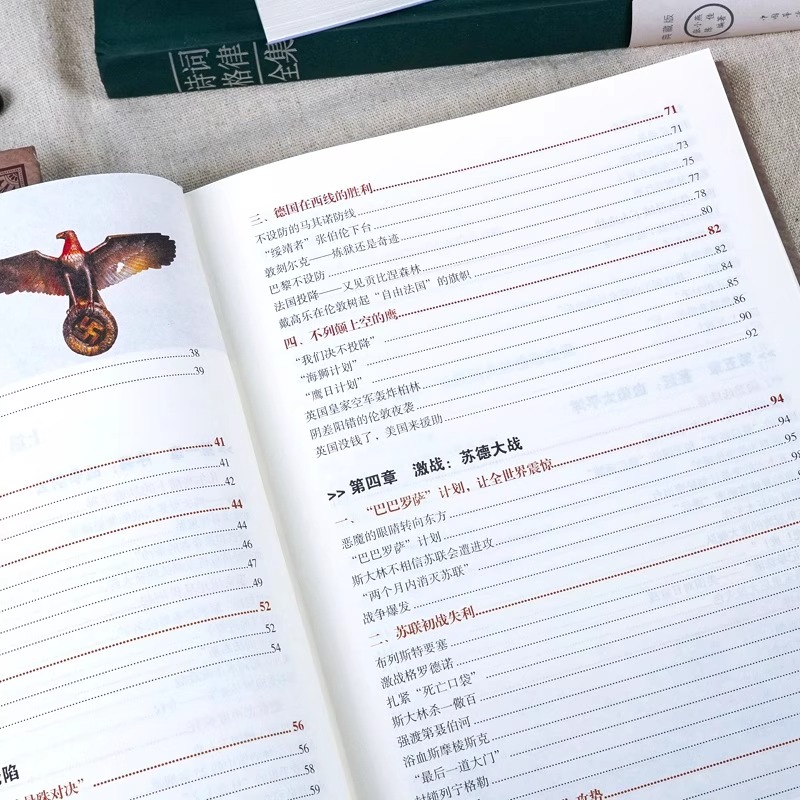 诗词
格律
全集
典藏版
38
39
41
41
42
44
44
46
47
49
52
52
54
陷
殊对决” 56
56
58
59
三、德国在西线的胜利........71
不设防的马其诺防线........71
“绥靖者”张伯伦下台........73
敦刻尔克——炼狱还是奇迹........75
巴黎不设防........77
法国投降——又见贡比涅森林........78
戴高乐在伦敦树起“自由法国”的旗帜........80
四、不列颠上空的鹰........82
“我们决不投降”........82
“海狮计划”........84
“鹰日计划”........85
英国皇家空军轰炸柏林........86
阴差阳错的伦敦夜袭........90
英国没钱了，美国来援助........92
>> 第四章 激战：苏德大战
一、“巴巴罗萨”计划，让全世界震惊........94
恶魔的眼睛转向东方........94
“巴巴罗萨”计划........95
斯大林不相信苏联会遭进攻........98
“两个月内消灭苏联”
战争爆发
二、苏联初战失利
布列斯特要塞
激战格罗德诺
扎紧“死亡口袋”
斯大林杀一儆百
强渡第聂伯河
浴血斯摩棱斯克
“最后一道大门”
封锁列宁格勒
攻势